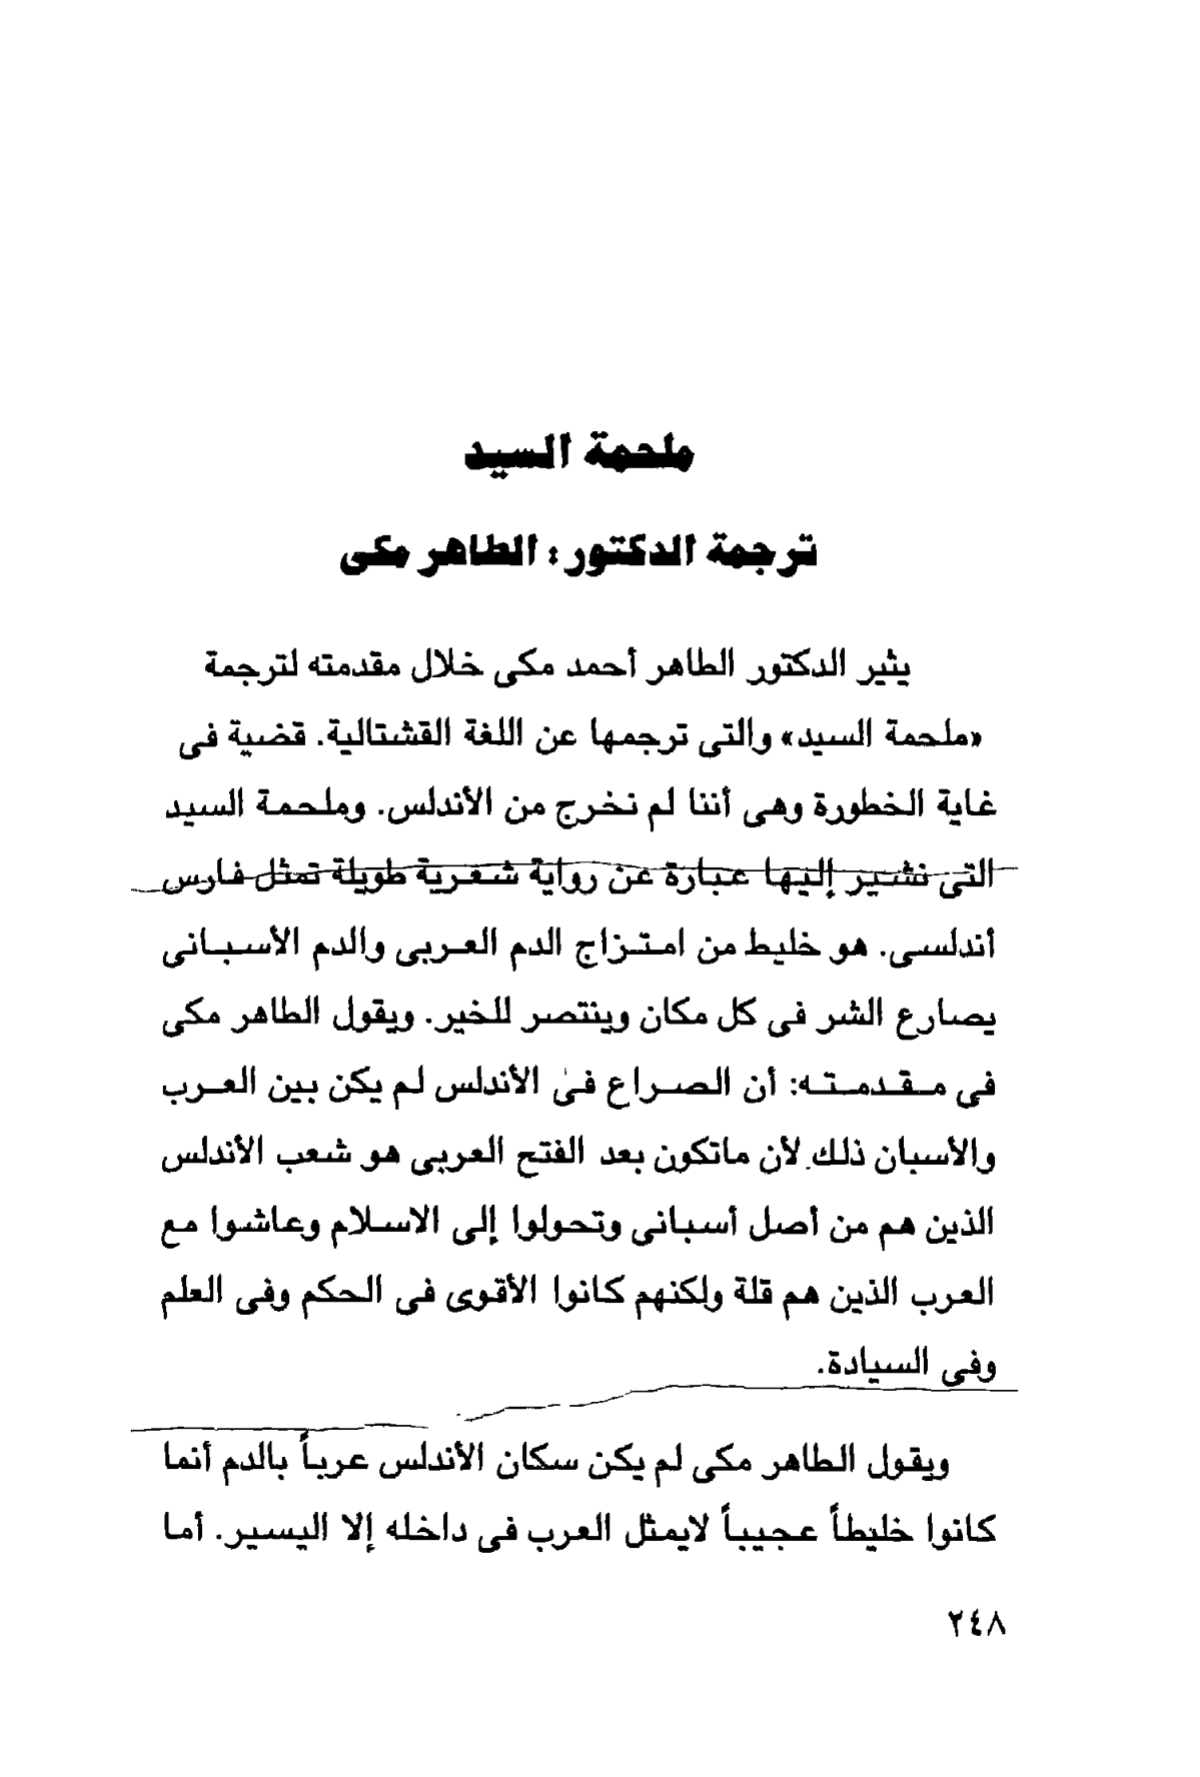 ملحمة السيد
ترجمة الدكتور : الطاهر مكى
يثير الدكتور الطاهر أحمد مكى خلال مقدمته لترجمة
«ملحمة السيد» والتى ترجمها عن اللغة القشتالية. قضية فى
غاية الخطورة وهى أننا لم نخرج من الأندلس. وملحمة السيد
التى نشير إليها عبارة عن رواية شعرية طويلة تمثل فارس
أندلسى. هو خليط من امتزاج الدم العربى والدم الأسبانى
يصارع الشر فى كل مكان وينتصر للخير. ويقول الطاهر مكى
فى مقدمته: أن الصراع فى الأندلس لم يكن بين العرب
والأسبان ذلك لأن ماتكون بعد الفتح العربى هو شعب الأندلس
الذين هم من أصل أسبانى وتحولوا إلى الاسلام وعاشوا مع
العرب الذين هم قلة ولكنهم كانوا الأقوى فى الحكم وفى العلم
وفى السيادة.
ويقول الطاهر مكى لم يكن سكان الأندلس عرباً بالدم أنما
كانوا خليطاً عجيباً لايمثل العرب فى داخله إلا اليسير. أما
٢٤٨